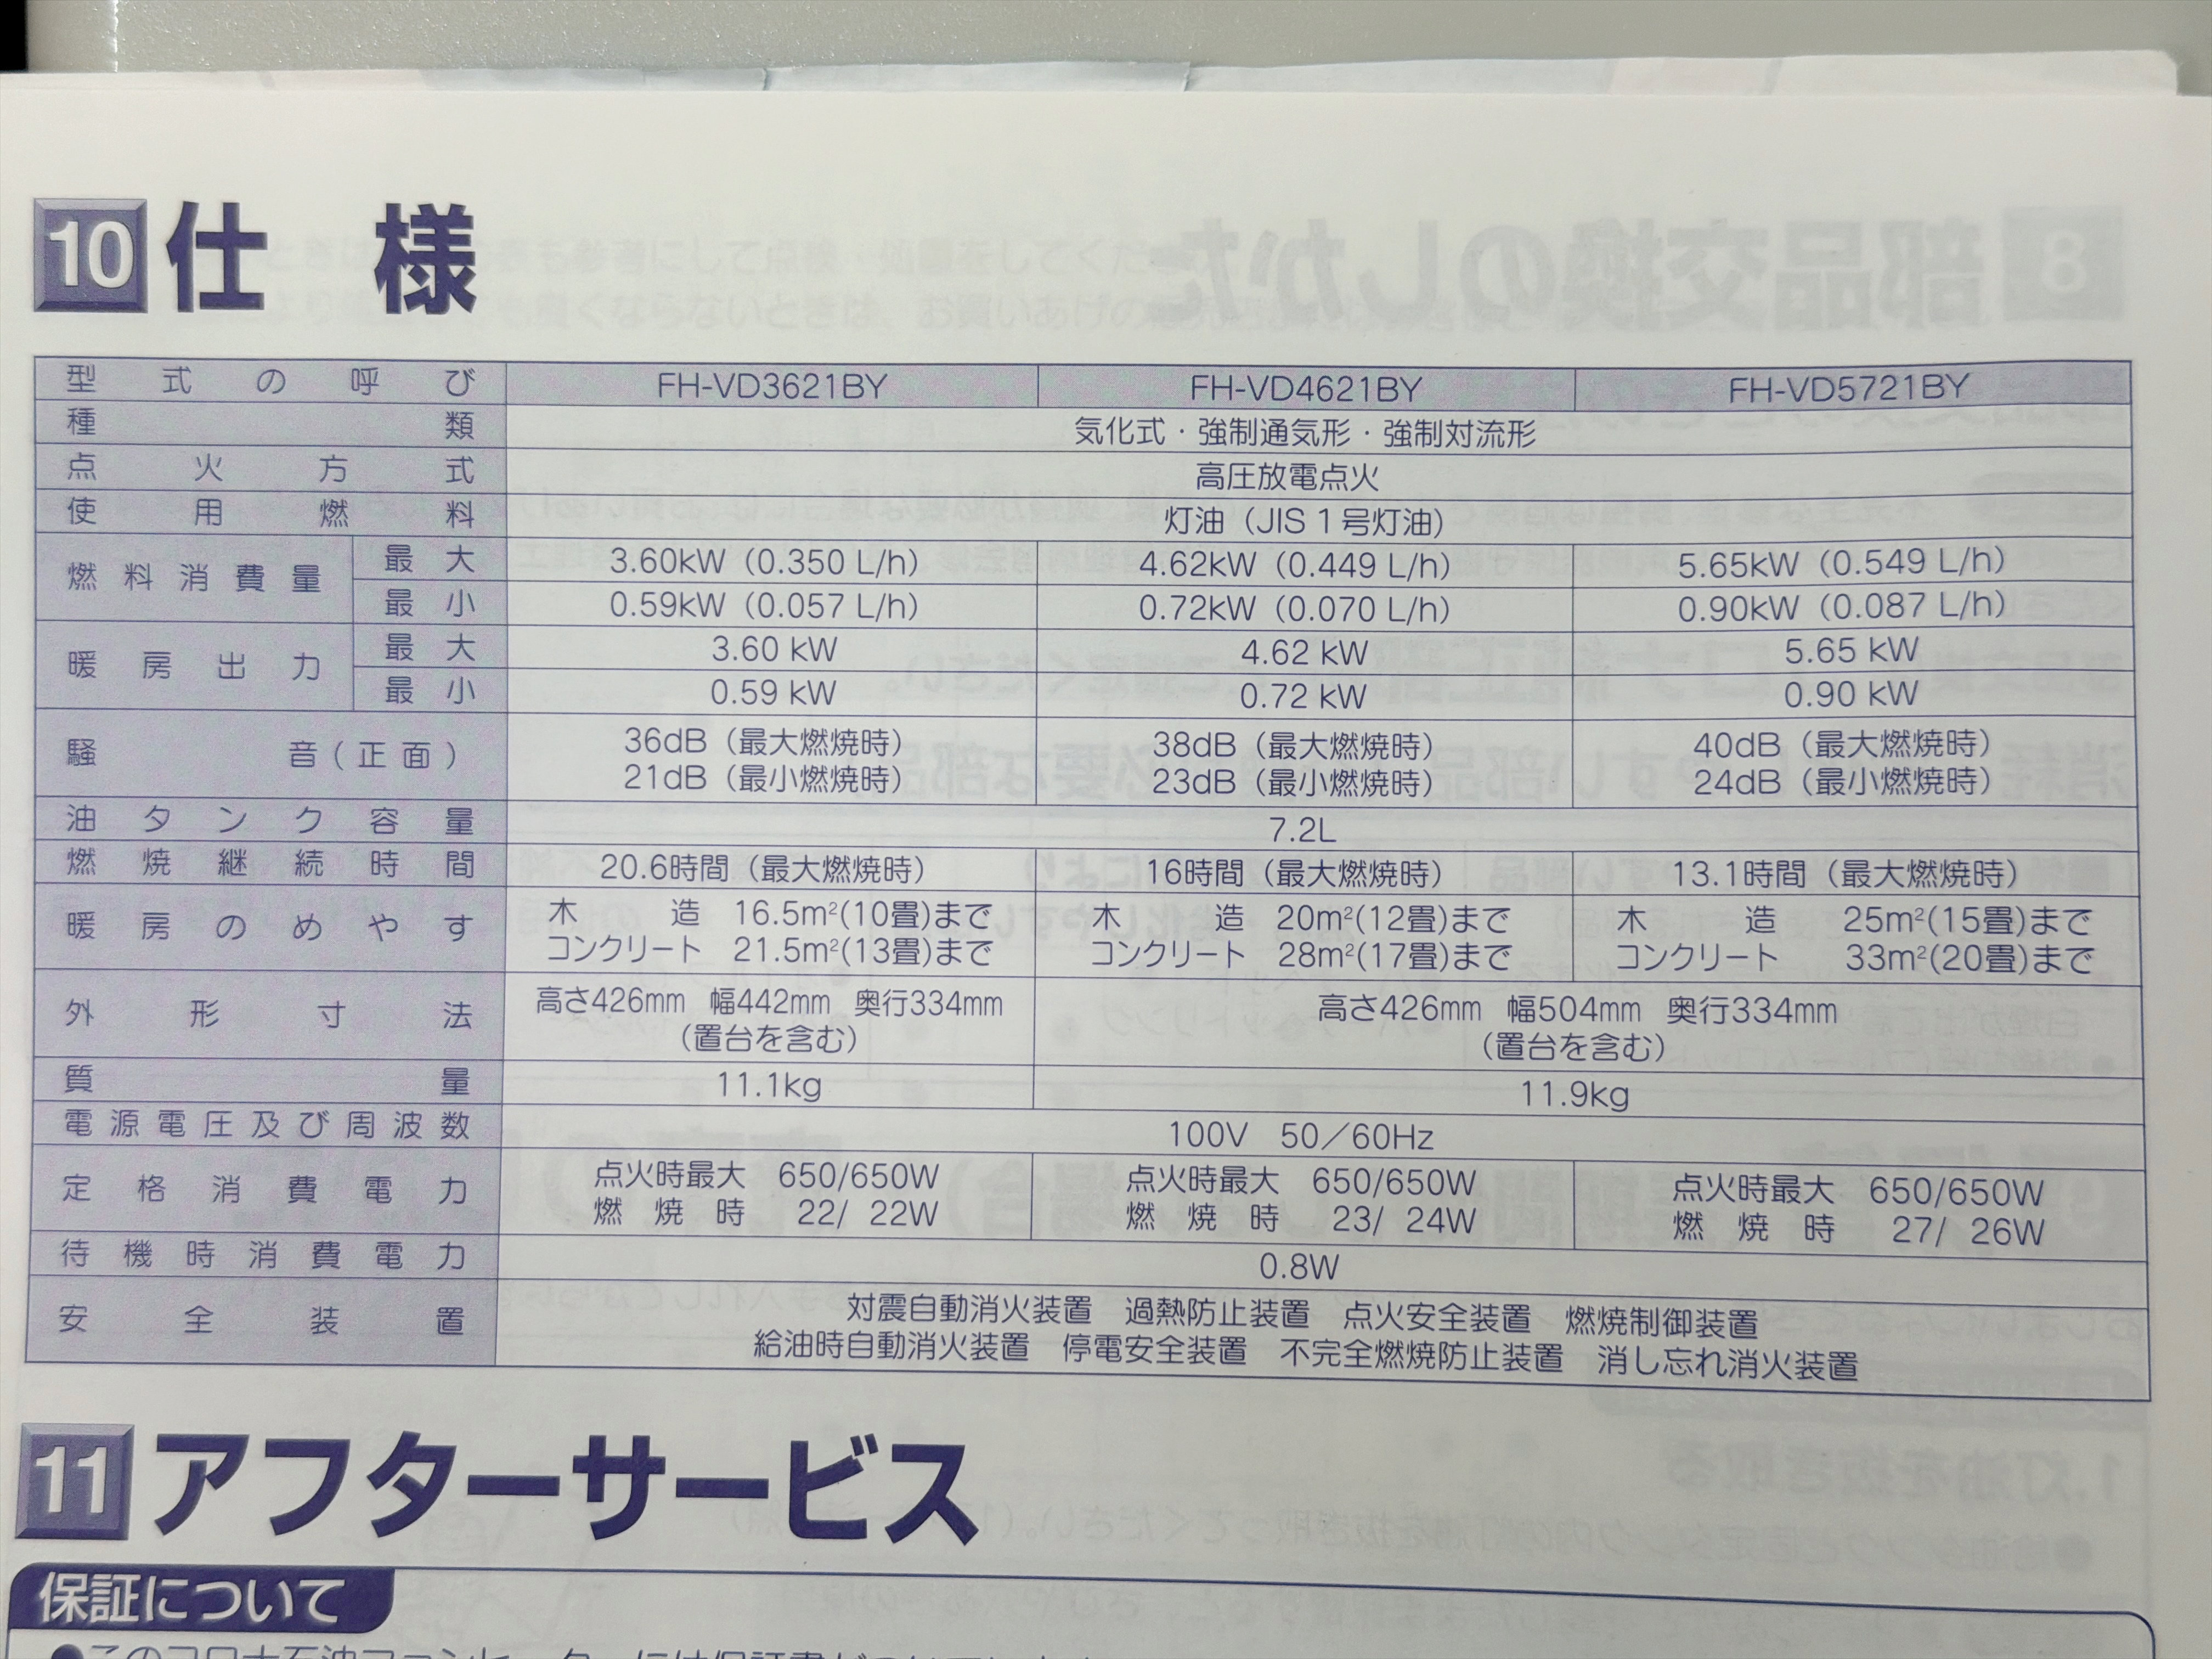 10 仕様
型式の呼び FH-VD3621BY FH-VD4621BY FH-VD5721BY
種類 気化式・強制通気形・強制対流形
点火方式 高圧放電点火
使用燃料 灯油（JIS１号灯油）
燃料消費量 最大 3.60kW（0.350 L/h） 4.62kW（0.449 L/h） 5.65kW（0.549 L/h）
最小 0.59kW（0.057 L/h） 0.72kW（0.070 L/h） 0.90kW（0.087 L/h）
暖房出力 最大 3.60 kW 4.62 kW 5.65 kW
最小 0.59 kW 0.72 kW 0.90 kW
騒音(正面) 36dB（最大燃焼時） 38dB（最大燃焼時） 40dB（最大燃焼時）
21dB（最小燃焼時） 23dB（最小燃焼時） 24dB（最小燃焼時）
油タンク容量 7.2L
燃焼継続時間 20.6時間（最大燃焼時） 16時間（最大燃焼時） 13.1時間（最大燃焼時）
暖房のめやす 木造 16.5m²(10畳)まで 木造 20m²(12畳)まで 木造 25m²(15畳)まで
コンクリート 21.5m²(13畳)まで コンクリート 28m²(17畳)まで コンクリート 33m²(20畳)まで
外形寸法 高さ426mm 幅442mm 奥行334mm 高さ426mm 幅504mm 奥行334mm
（置台を含む） （置台を含む）
質量 11.1kg 11.9kg
電源電圧及び周波数 100V 50／60Hz
定格消費電力 点火時最大 650/650W 点火時最大 650/650W 点火時最大 650/650W
燃焼時 22/ 22W 燃焼時 23/ 24W 燃焼時 27/ 26W
待機時消費電力 0.8W
安全装置 対震自動消火装置 過熱防止装置 点火安全装置 燃焼制御装置
給油時自動消火装置 停電安全装置 不完全燃焼防止装置 消し忘れ消火装置
11 アフターサービス
保証について
●このコロナ石油ファンヒーターには保証書がついています